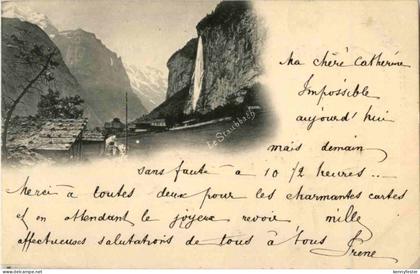 Ma chèrè Catherine
Impossible
aujourd'hui
mais demain
Le Staubbach
sans faute à 10 1/2 heures...
Merci à toutes deux pour les charmantes cartes
et en attendant le joyeux revoir mille
affectueuses salutations de tous à tous
Irene
bennyfester